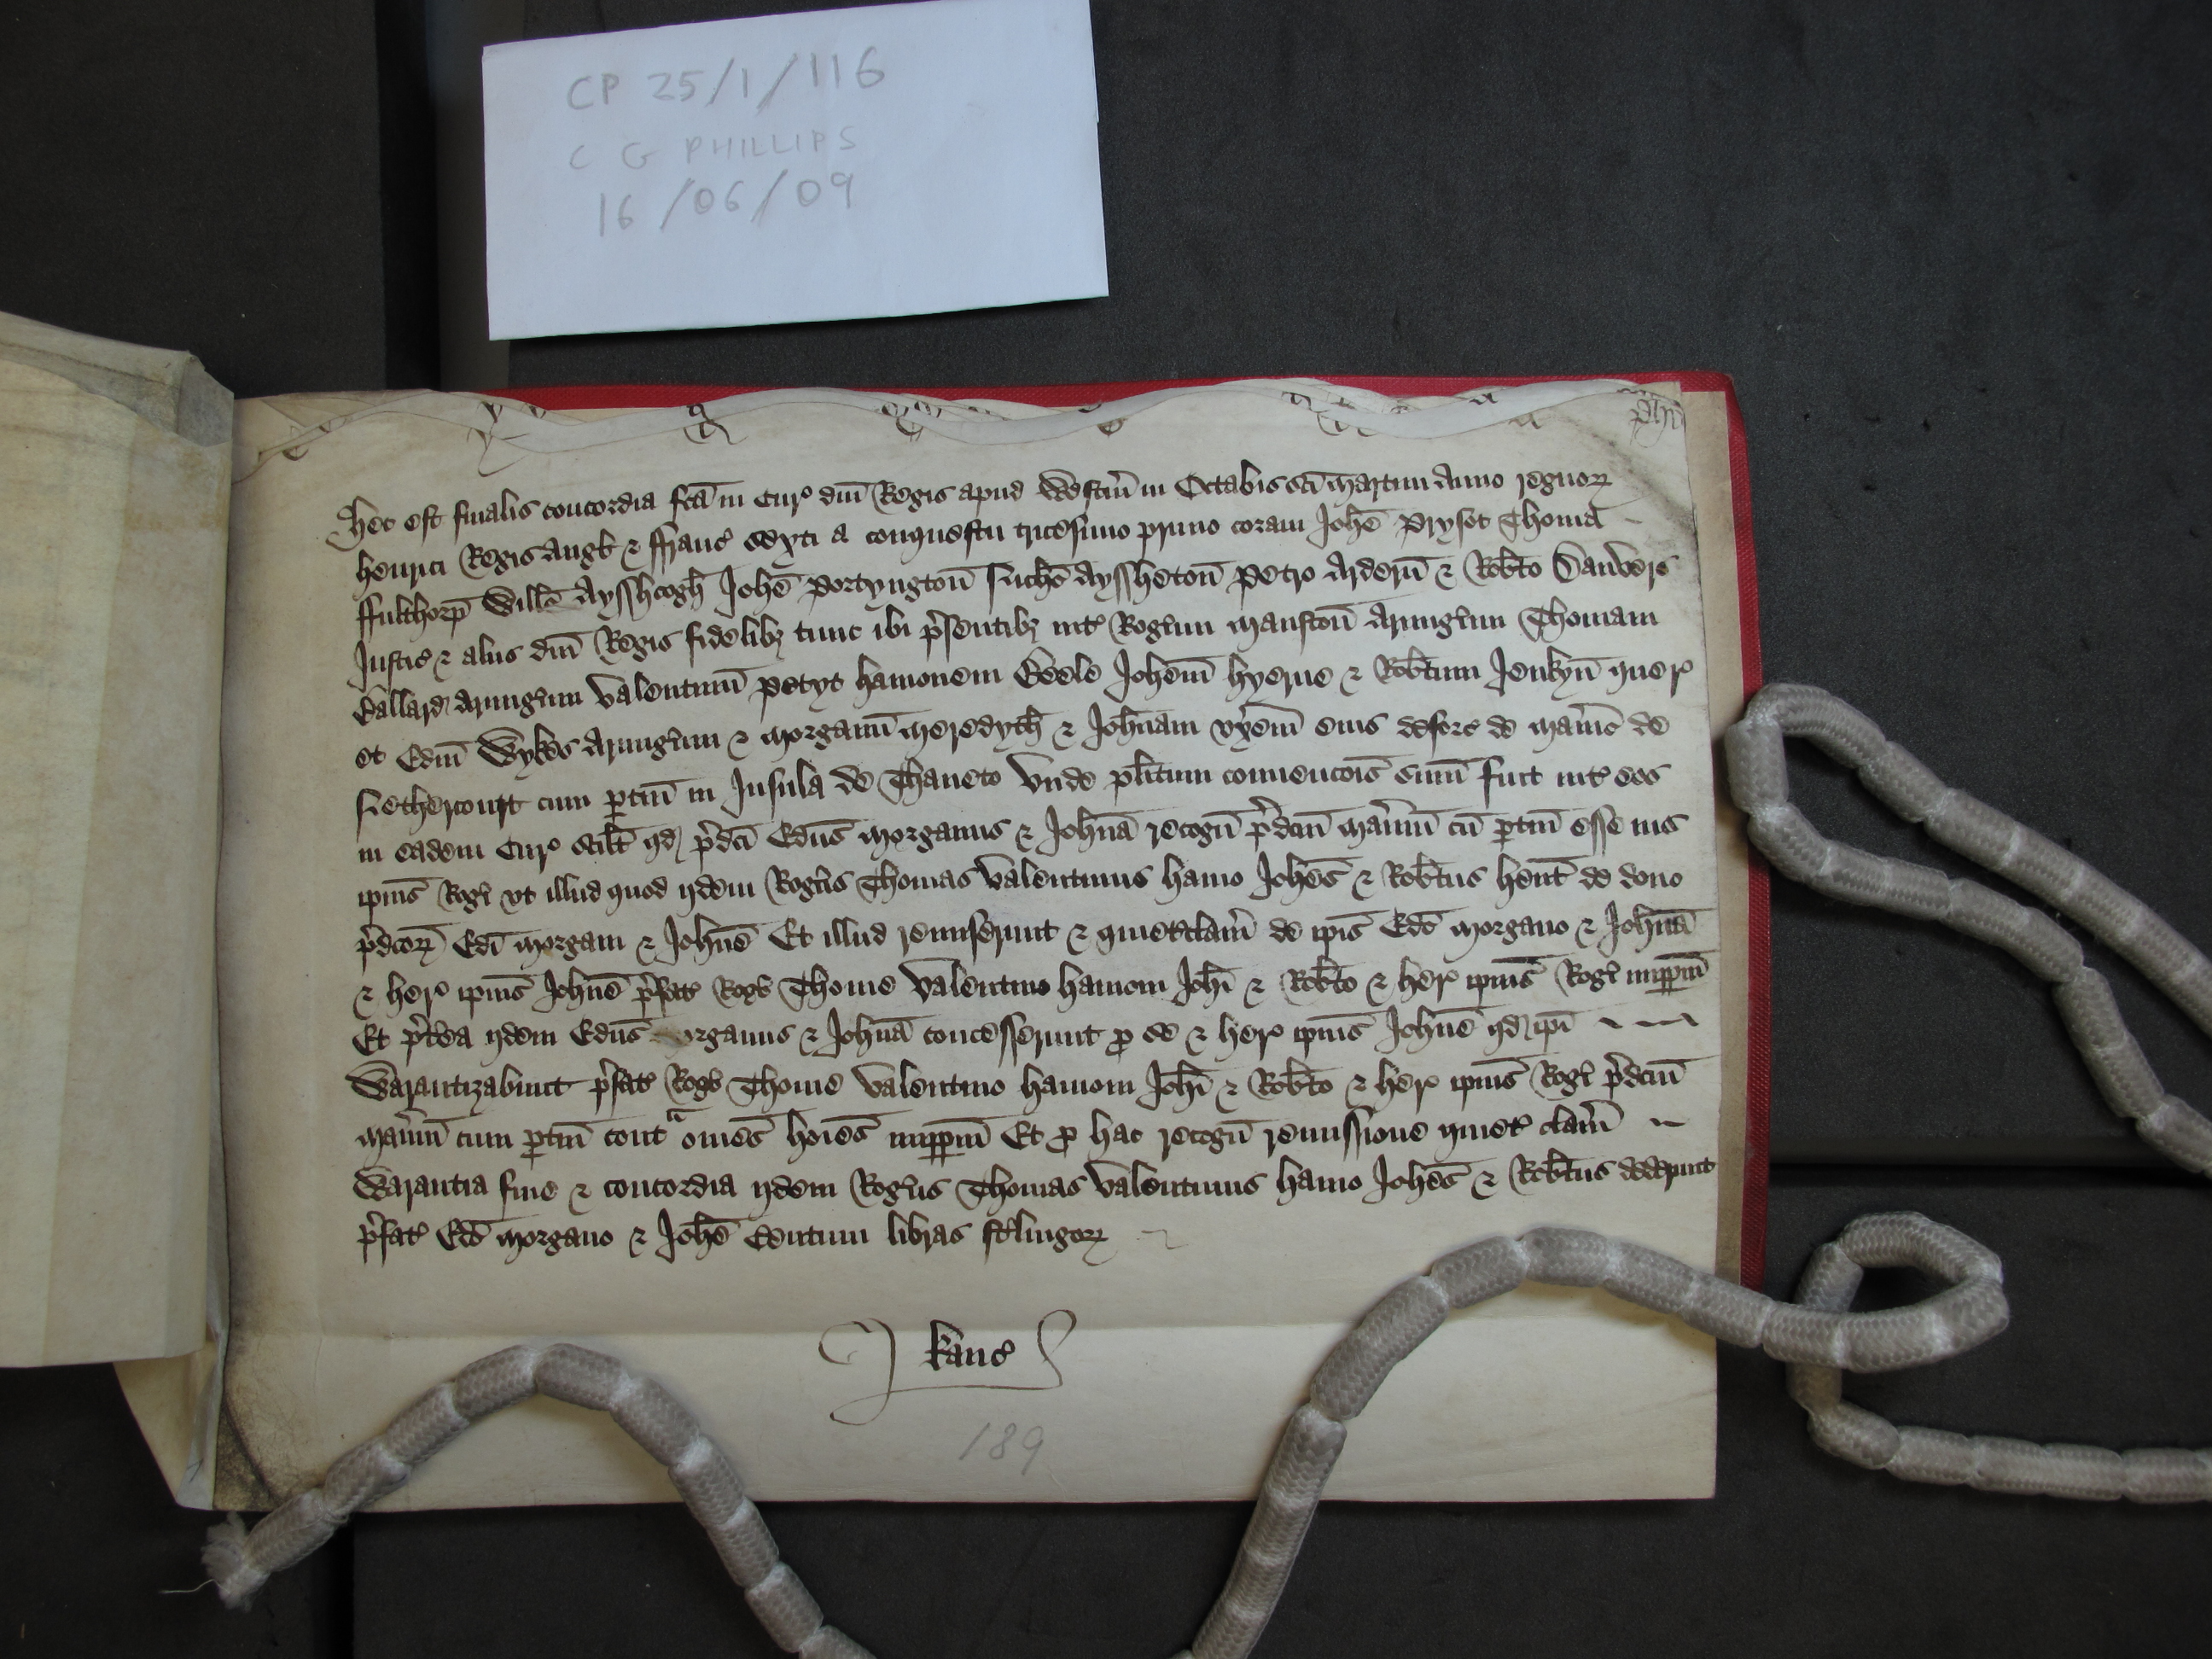 CP 25/1/116
C G PHILLIPS
16/06/09
Hec est finalis concordia fc̄a in Cur’ dn̄i Regis apud Westm̄ in Octabis sc̄i Martini Anno regnoꝝ
Henrici Regis Angl̄ ⁊ ffranc’ sexti a conquestu tricesimo primo coram Joh̄e Prysot Thoma
ffulthorp̄ Will̄o Aysshcogh̄ Joh̄e Portyngton̄ Nich̄o Ayssheton̄ Petro Ardern̄ ⁊ Rob̄to Danvers
Justic’ ⁊ aliis dn̄i Regis fidelibꝫ tunc ibi p̄sentibꝫ int’ Rogūm Manston̄ Armigūm Thomam
Ballard Armigūm Valentinū Petyt Hamonem Beele Joh̄em Hyerne ⁊ Rob̄tum Jenkyn̄ quer’
et Edm̄ Wykes Armigūm ⁊ Morganū Meredyth̄ ⁊ Joh̄nam vx̄em eius deforc’ de Man̄io de
Nethercourt cum ꝑtin̄ in Insula de Thaneto Vnde pl̄itum conuenc̄ois sum̄ fuit int’ eos
in eadem Cur’ Scil̄t qd p̄dc̄i Edūs Morganus ⁊ Joh̄na recogn̄ p̄dcm̄ Man̄ium cū ꝑtin̄ esse ius
ip̄ius Rogī vt illud quod ijdem Rogūs Thomas Valentinus Hamo Joh̄es ⁊ Rob̄tus hent̄ de dono
p̄dc̄oꝝ Edī Morgani ⁊ Joh̄ne Et illud remiserunt ⁊ quietclam̄ de ip̄is Edō Morgano ⁊ Joh̄na
⁊ her’ ip̄ius Joh̄ne p̄fat’ Rogō Thome Valentino Hamoni Joh̄i ⁊ Rob̄to ⁊ her’ ip̄ius Rogī imꝑpm̄
Et p̄tea ijdem Edūs Morganus ⁊ Joh̄na concesserunt ꝓ se ⁊ her’ ip̄ius Joh̄ne qd ip̄i
Warantizabunt p̄fat’ Rogō Thome Valentino Hamoni Joh̄i ⁊ Rob̄to ⁊ her’ ip̄ius Rogī p̄dcm̄
Man̄ium cum ꝑtin̄ contᵃ om̄es hōies imꝑpm̄ Et ꝓ hac recogn̄ remissione quiet’ clam̄
Warantia fine ⁊ concordia ijdem Rogūs Thomas Valentinus Hamo Joh̄es ⁊ Rob̄tus dederunt
p̄fat’ Edō Morgano ⁊ Joh̄e Centum libras st̄lingoꝝ
Kanc’
189